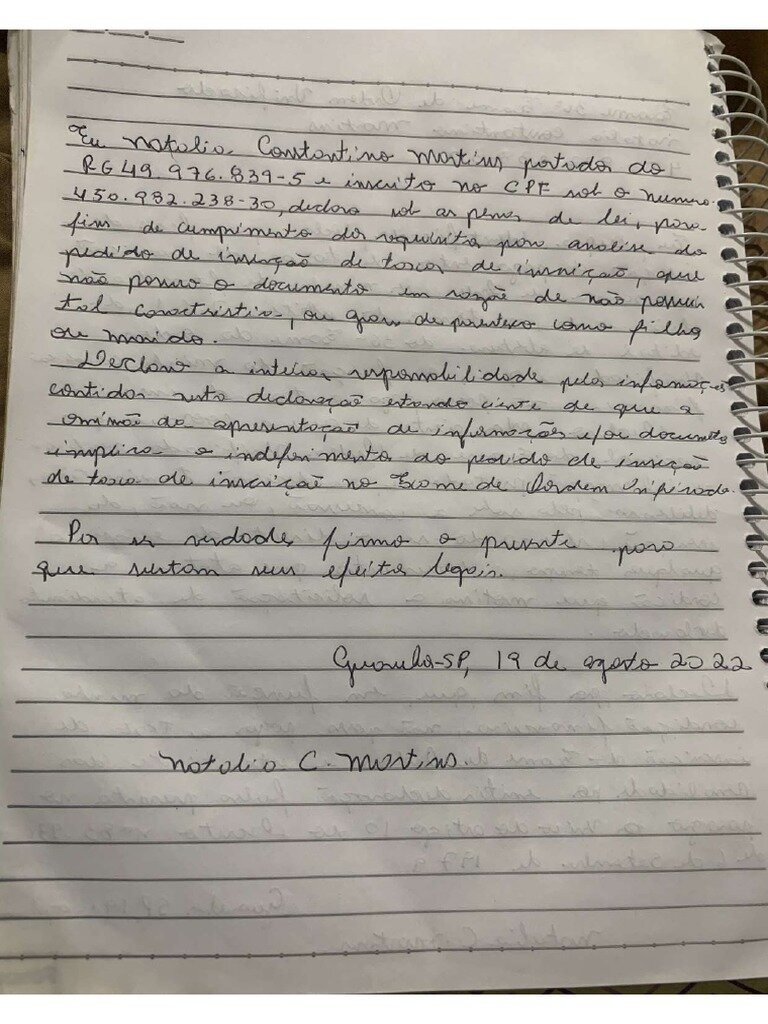 Eu Natalia Constantino Martins portador do
RG 49.976.839-5 e inscrito no CPF sob o numero
450.982.238-30, declaro sob as penas de lei, para
fins de cumprimento dos requisitos para analise do
pedido de insenção de taxa de inscrição, que
não possuo o documento em razão de não possuir
tal caractristica, ou grau de parentesco como filho
ou marido.
Declaro a inteira responsabilidade pelas informações
contidas nesta declaração estando ciente de que a
omissão da apresentação de informações e/ou documentos
implica o indeferimento do pedido de inseção
de taxa de inscrição no Exame de Ordem Unificado.
Por ser verdade, firmo o presente para
que surtam seus efeitos legais.
Guarulhos-SP, 19 de agosto 2022
Natalia C. Martins.